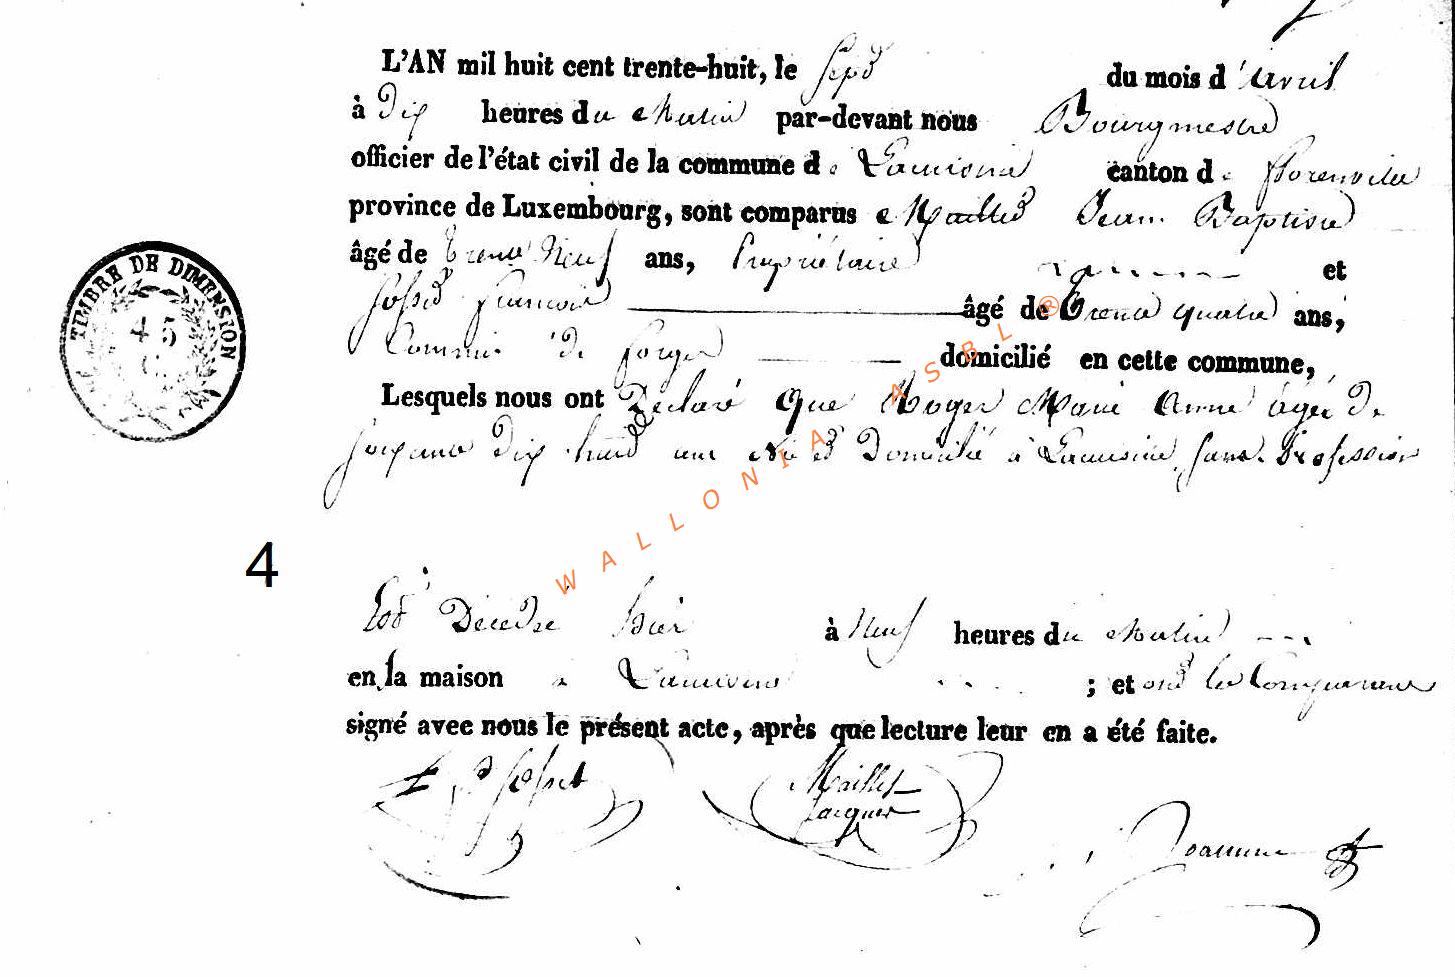 L'AN mil huit cent trente-huit, le Sept du mois d'Avril
à Dix heures du Matin par-devant nous Bourgmestre
officier de l'état civil de la commune de Lacuisine canton de Florenville
province de Luxembourg, sont comparus Maillet Jean Baptiste
âgé de Trente Neuf ans, Propriétaire et
François âgé de Trente quatre ans,
Commis de forges domicilié en cette commune,
Lesquels nous ont Déclaré que Roger Marie Anne agée de
soixante dix huit ans Née et Domicilié à Lacuisine sans Profession
TIMBRE DE DIMENSION
45
C.
4
Est Décédée hier à Neuf heures du Matin
en la maison à Lacuisine ; et ont les Comparants
signé avec nous le présent acte, après que lecture leur en a été faite.
Maillet
Jacques
WALLONIA ASBL®